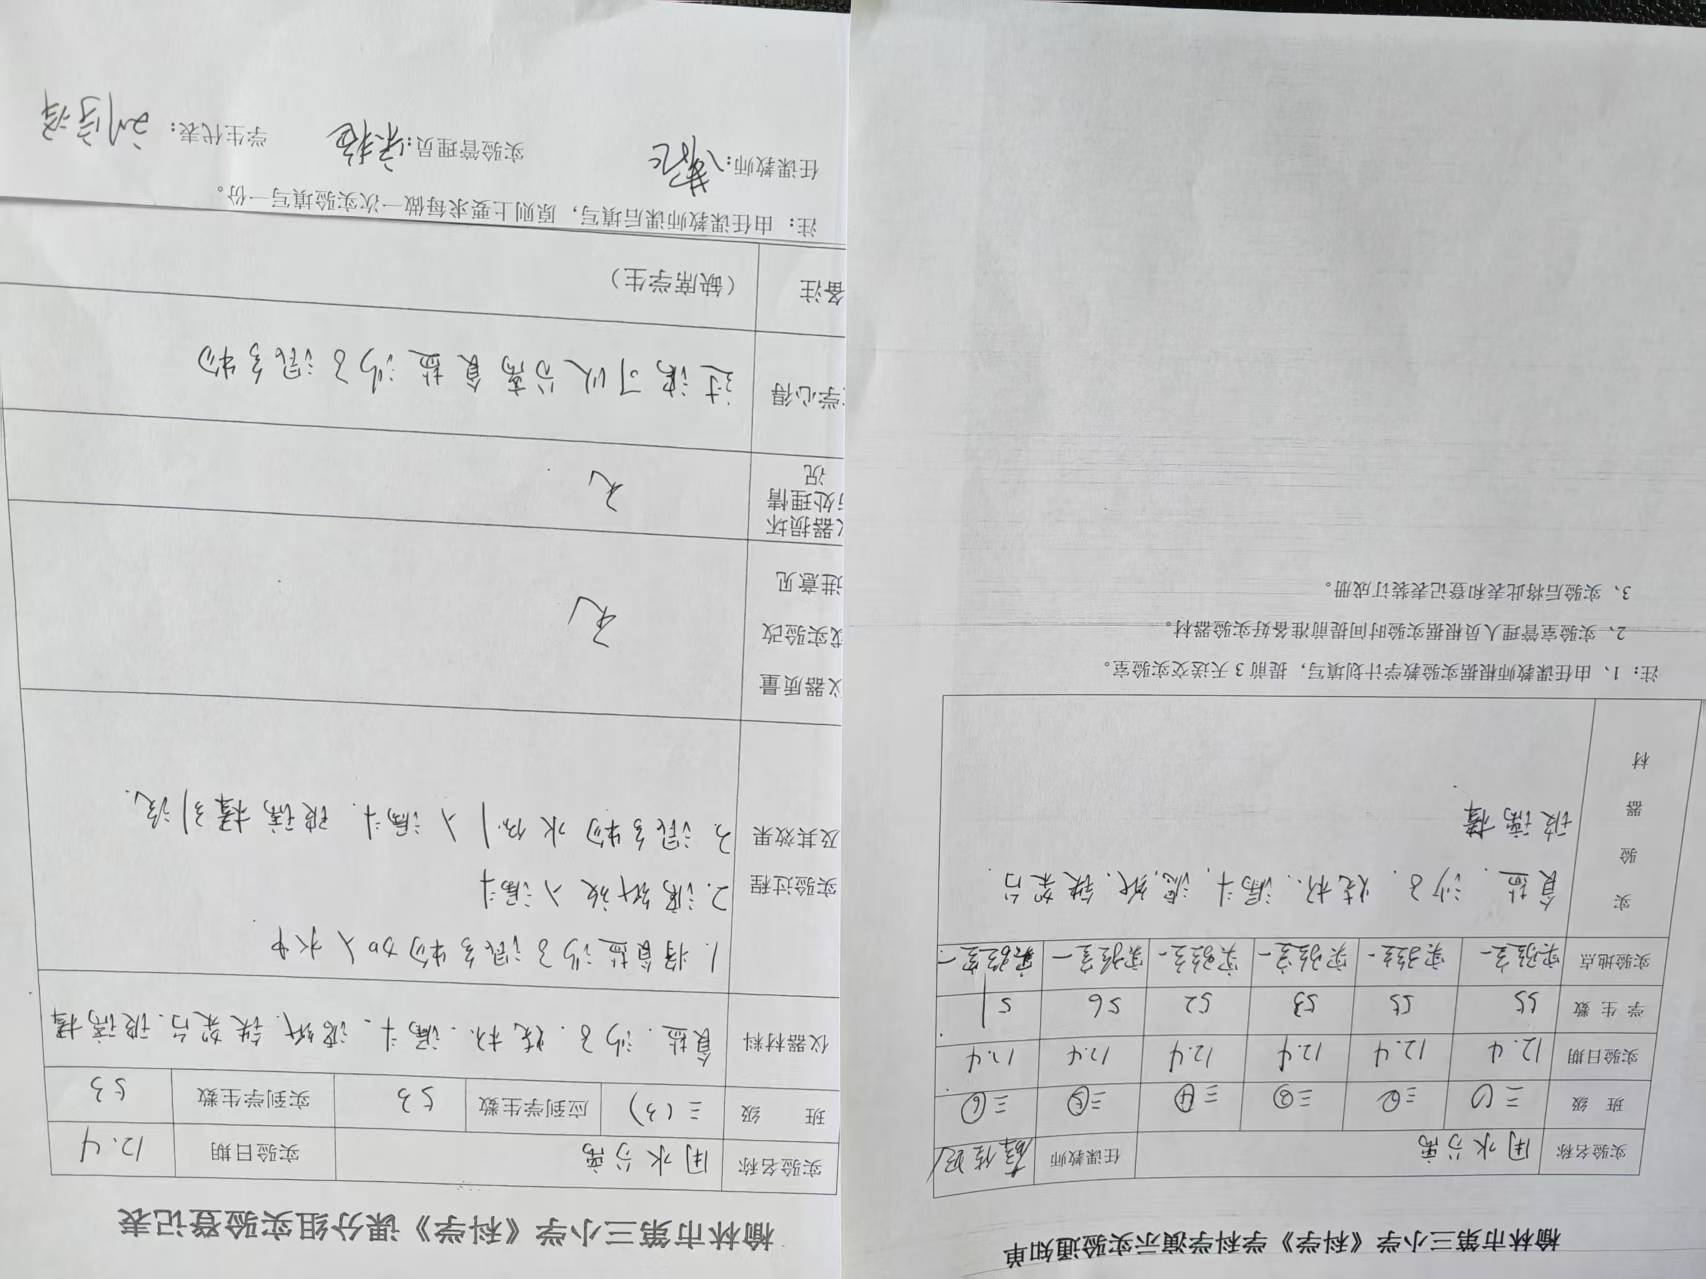 榆林市第三小学《科学》学科学演示实验通知单
实验名称 用水分离 任课教师
班 级 三① 三② 三③ 三④ 三⑤ 三⑥
实验日期 12.4 12.4 12.4 12.4 12.4 12.4
学 生 数 55 55 53 52 56 51
实验地点 实验室一 实验室一 实验室一 实验室一 实验室一 实验室一
实验器材 食盐.沙子.烧杯.漏斗.滤纸.铁架台.
玻璃棒
注：1、由任课教师根据实验教学计划填写，提前 3 天送交实验室。
2、实验室管理人员根据实验时间提前准备好实验器材。
3、实验后将此表和登记表装订成册。
榆林市第三小学《科学》课分组实验登记表
实验名称 用水分离 实验日期 12.4
班 级 三(3) 应到学生数 53 实到学生数 53
仪器材料 食盐.沙子.烧杯.漏斗.滤纸.铁架台.玻璃棒
实验过程
及其效果
1.将食盐沙子混合物加入水中
2.滤纸放入漏斗
3.混合物水倒入漏斗.玻璃棒引流.
仪器质量
或实验改
进意见
无
仪器损坏
与处理情
况
无
学心得 过滤可以分离食盐沙子混合物
备注 （缺席学生）
注：由任课教师课后填写，原则上要求每做一次实验填写一份。
任课教师： 实验管理员： 学生代表：